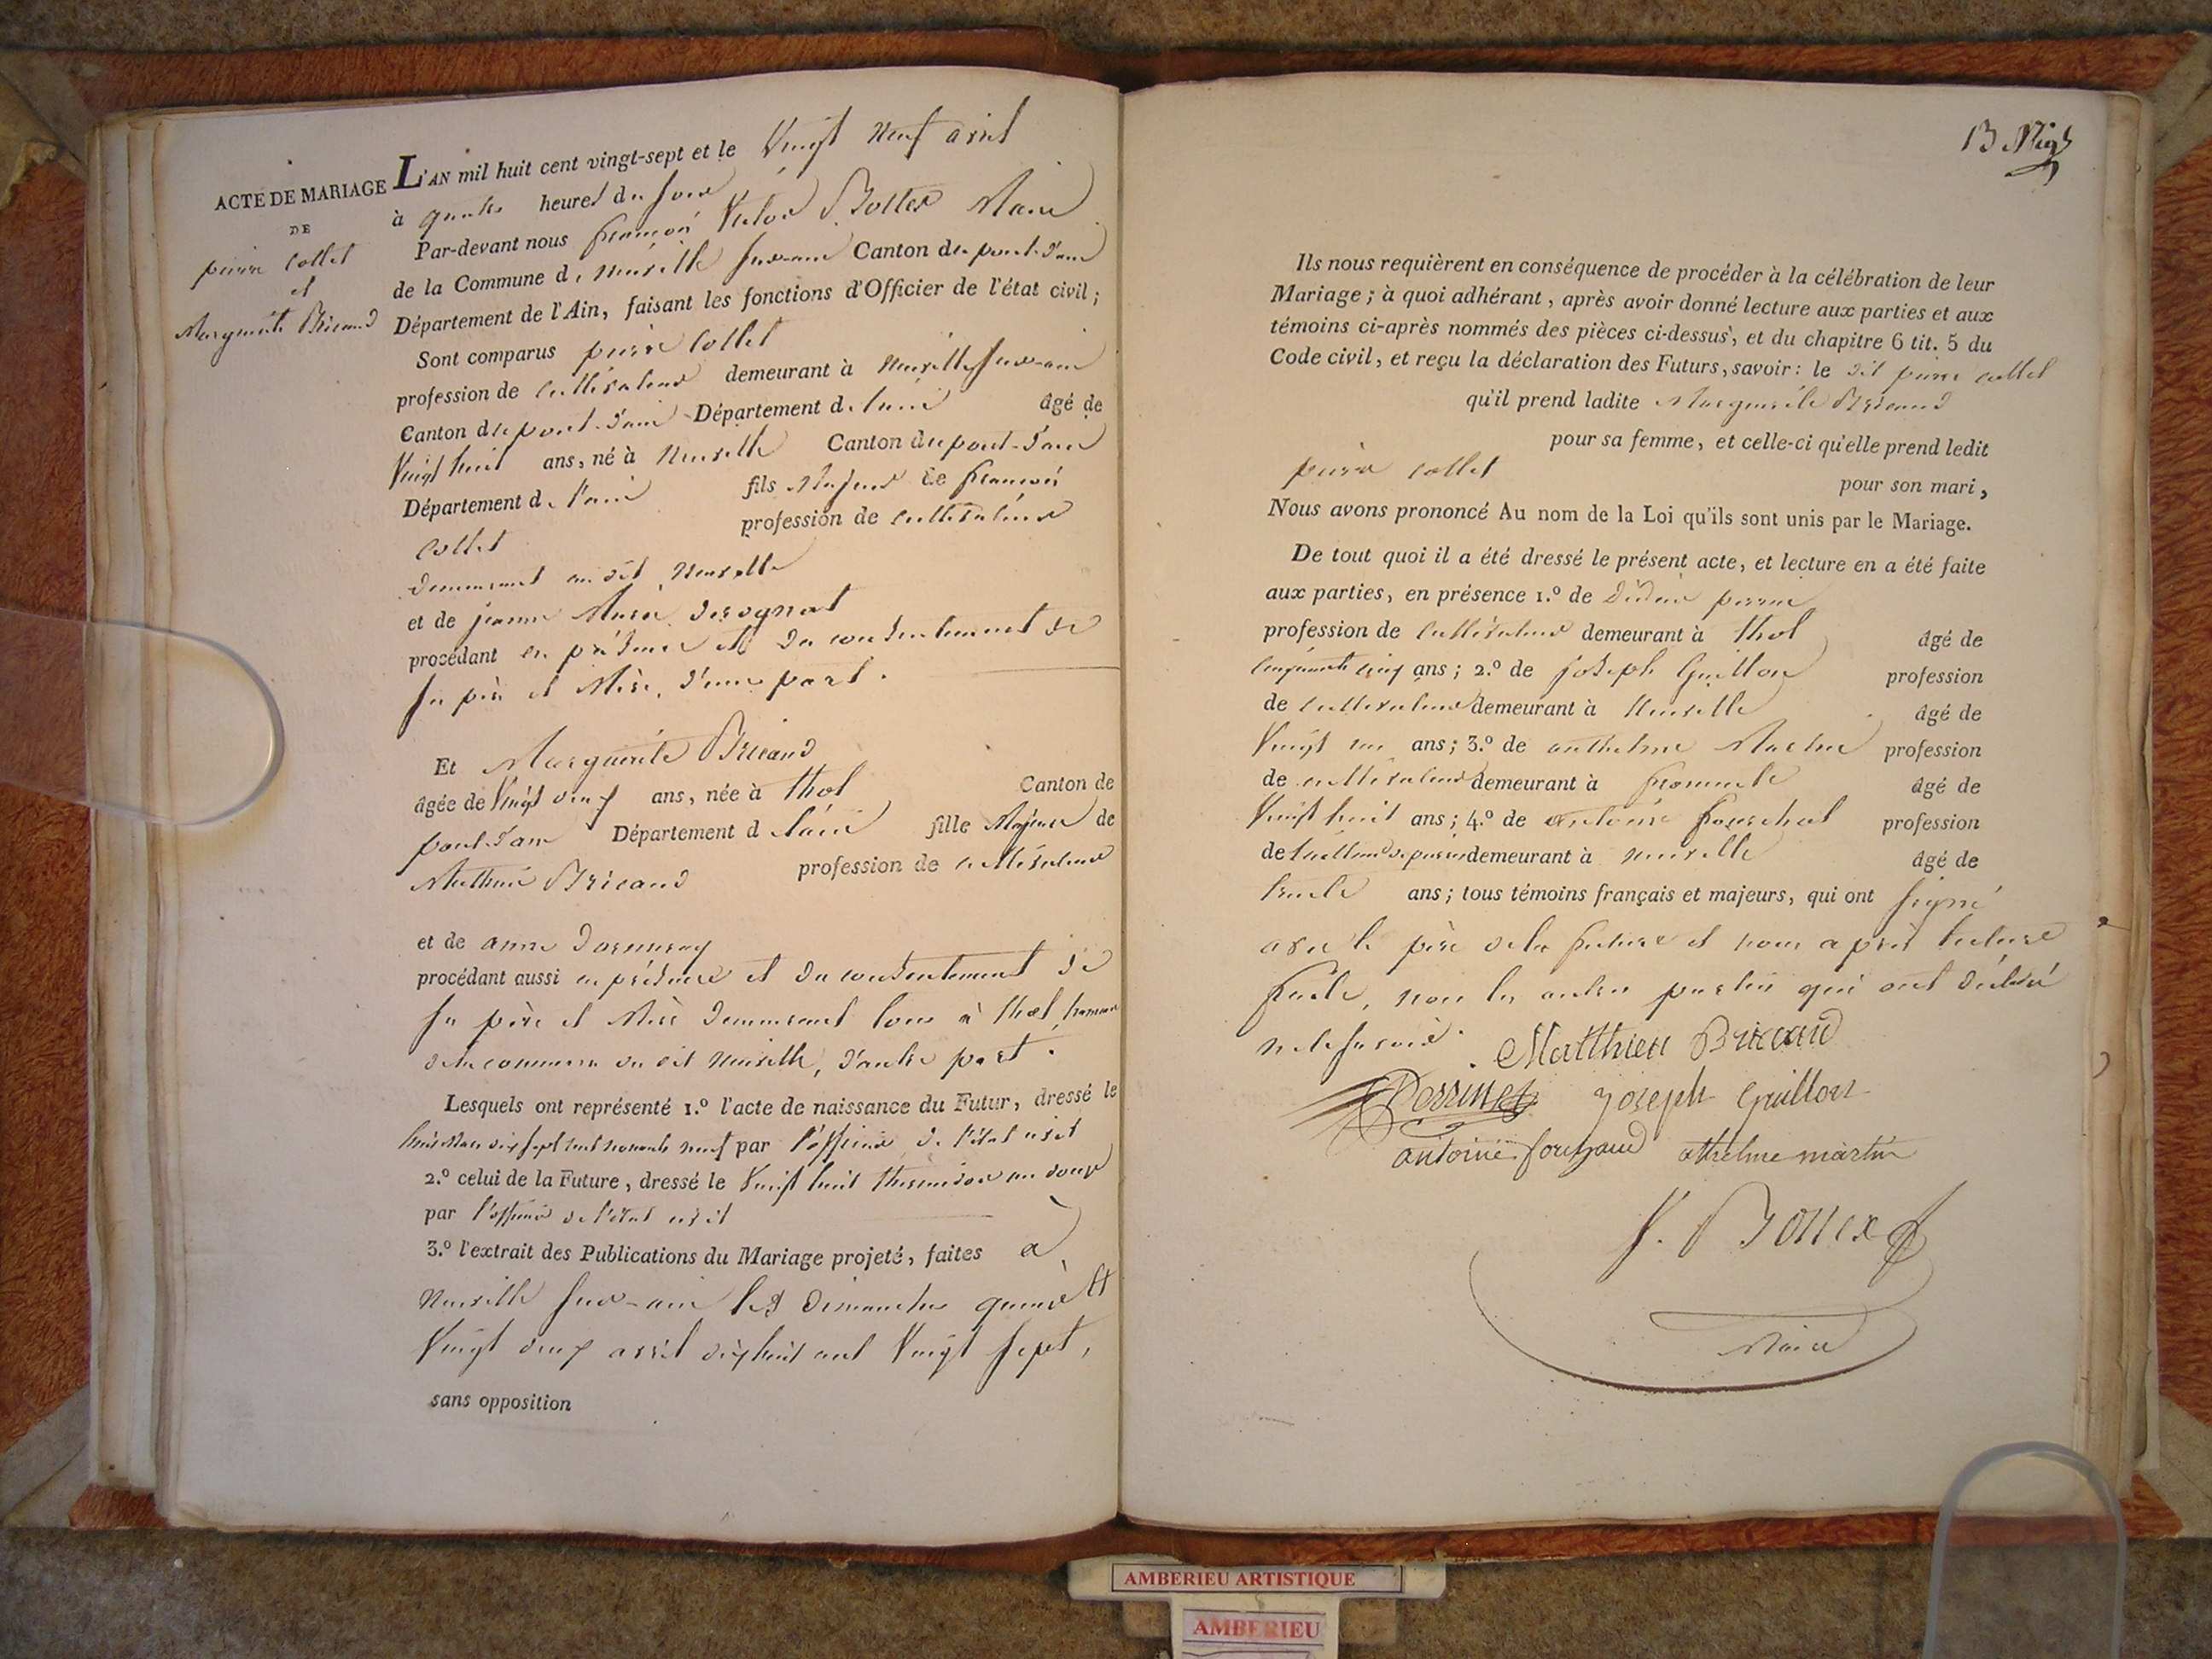 ACTE DE MARIAGE
DE
pierre Collet
et
Marguerite Bricaud
L'AN mil huit cent vingt-sept et le Vingt neuf avril
à quatre heures du soir
Par-devant nous françois Victor Bottex Maire
de la Commune de Neuville sur-ain Canton du pont-d'ain
Département de l'Ain, faisant les fonctions d'Officier de l'état civil;
Sont comparus pierre Collet
profession de Cultivateur demeurant à Neuville sur-ain
Canton du pont-d'ain Département de l'ain âgé de
Vingt huit ans, né à Neuville Canton du pont-d'ain
Département de l'ain fils Majeur de françois
Collet profession de Cultivateur
demeurant au dit Neuville
et de jeanne Marie
procédant en présence et du consentement de
ses père et Mère, d'une part.
Et Marguerite Bricaud
âgée de Vingt deux ans, née à thol Canton de
pont-d'ain Département de l'ain fille Majeure de
Mathieu Bricaud profession de cultivateur
et de anne
procédant aussi en présence et du consentement de
ses père et Mère demeurant tous à thol hameau
de la commune du dit Neuville, d'autre part.
Lesquels ont représenté 1.º l'acte de naissance du Futur, dressé le
dix sept cent nonante neuf par l'officier de l'état civil
2.º celui de la Future, dressé le Vingt huit thermidor an douze
par l'officier de l'état civil
3.º l'extrait des Publications du Mariage projeté, faites à
Neuville sur-ain les dimanches quinze et
Vingt deux avril dix huit cent Vingt sept,
sans opposition
13
Ils nous requièrent en conséquence de procéder à la célébration de leur
Mariage; à quoi adhérant, après avoir donné lecture aux parties et aux
témoins ci-après nommés des pièces ci-dessus, et du chapitre 6 tit. 5 du
Code civil, et reçu la déclaration des Futurs, savoir: le dit pierre collet
qu'il prend ladite Marguerite Bricaud
pour sa femme, et celle-ci qu'elle prend ledit
pierre collet pour son mari,
Nous avons prononcé Au nom de la Loi qu'ils sont unis par le Mariage.
De tout quoi il a été dressé le présent acte, et lecture en a été faite
aux parties, en présence 1.º de
profession de Cultivateur demeurant à thol âgé de
Cinquante cinq ans; 2.º de joseph Guillon profession
de cultivateur demeurant à Neuville âgé de
Vingt un ans; 3.º de anthelme Martin profession
de cultivateur demeurant à fromente âgé de
Vingt huit ans; 4.º de antoine profession
de tailleur de pierre demeurant à Neuville âgé de
trente ans; tous témoins français et majeurs, qui ont signé
avec le père de la future et nous après lecture
faite, non les autres parties qui ont déclaré
ne le savoir.
Matthieu Bricaud
Joseph Guillon
antoine athelme martin
V. Bottex
Maire
AMBERIEU ARTISTIQUE
AMBERIEU